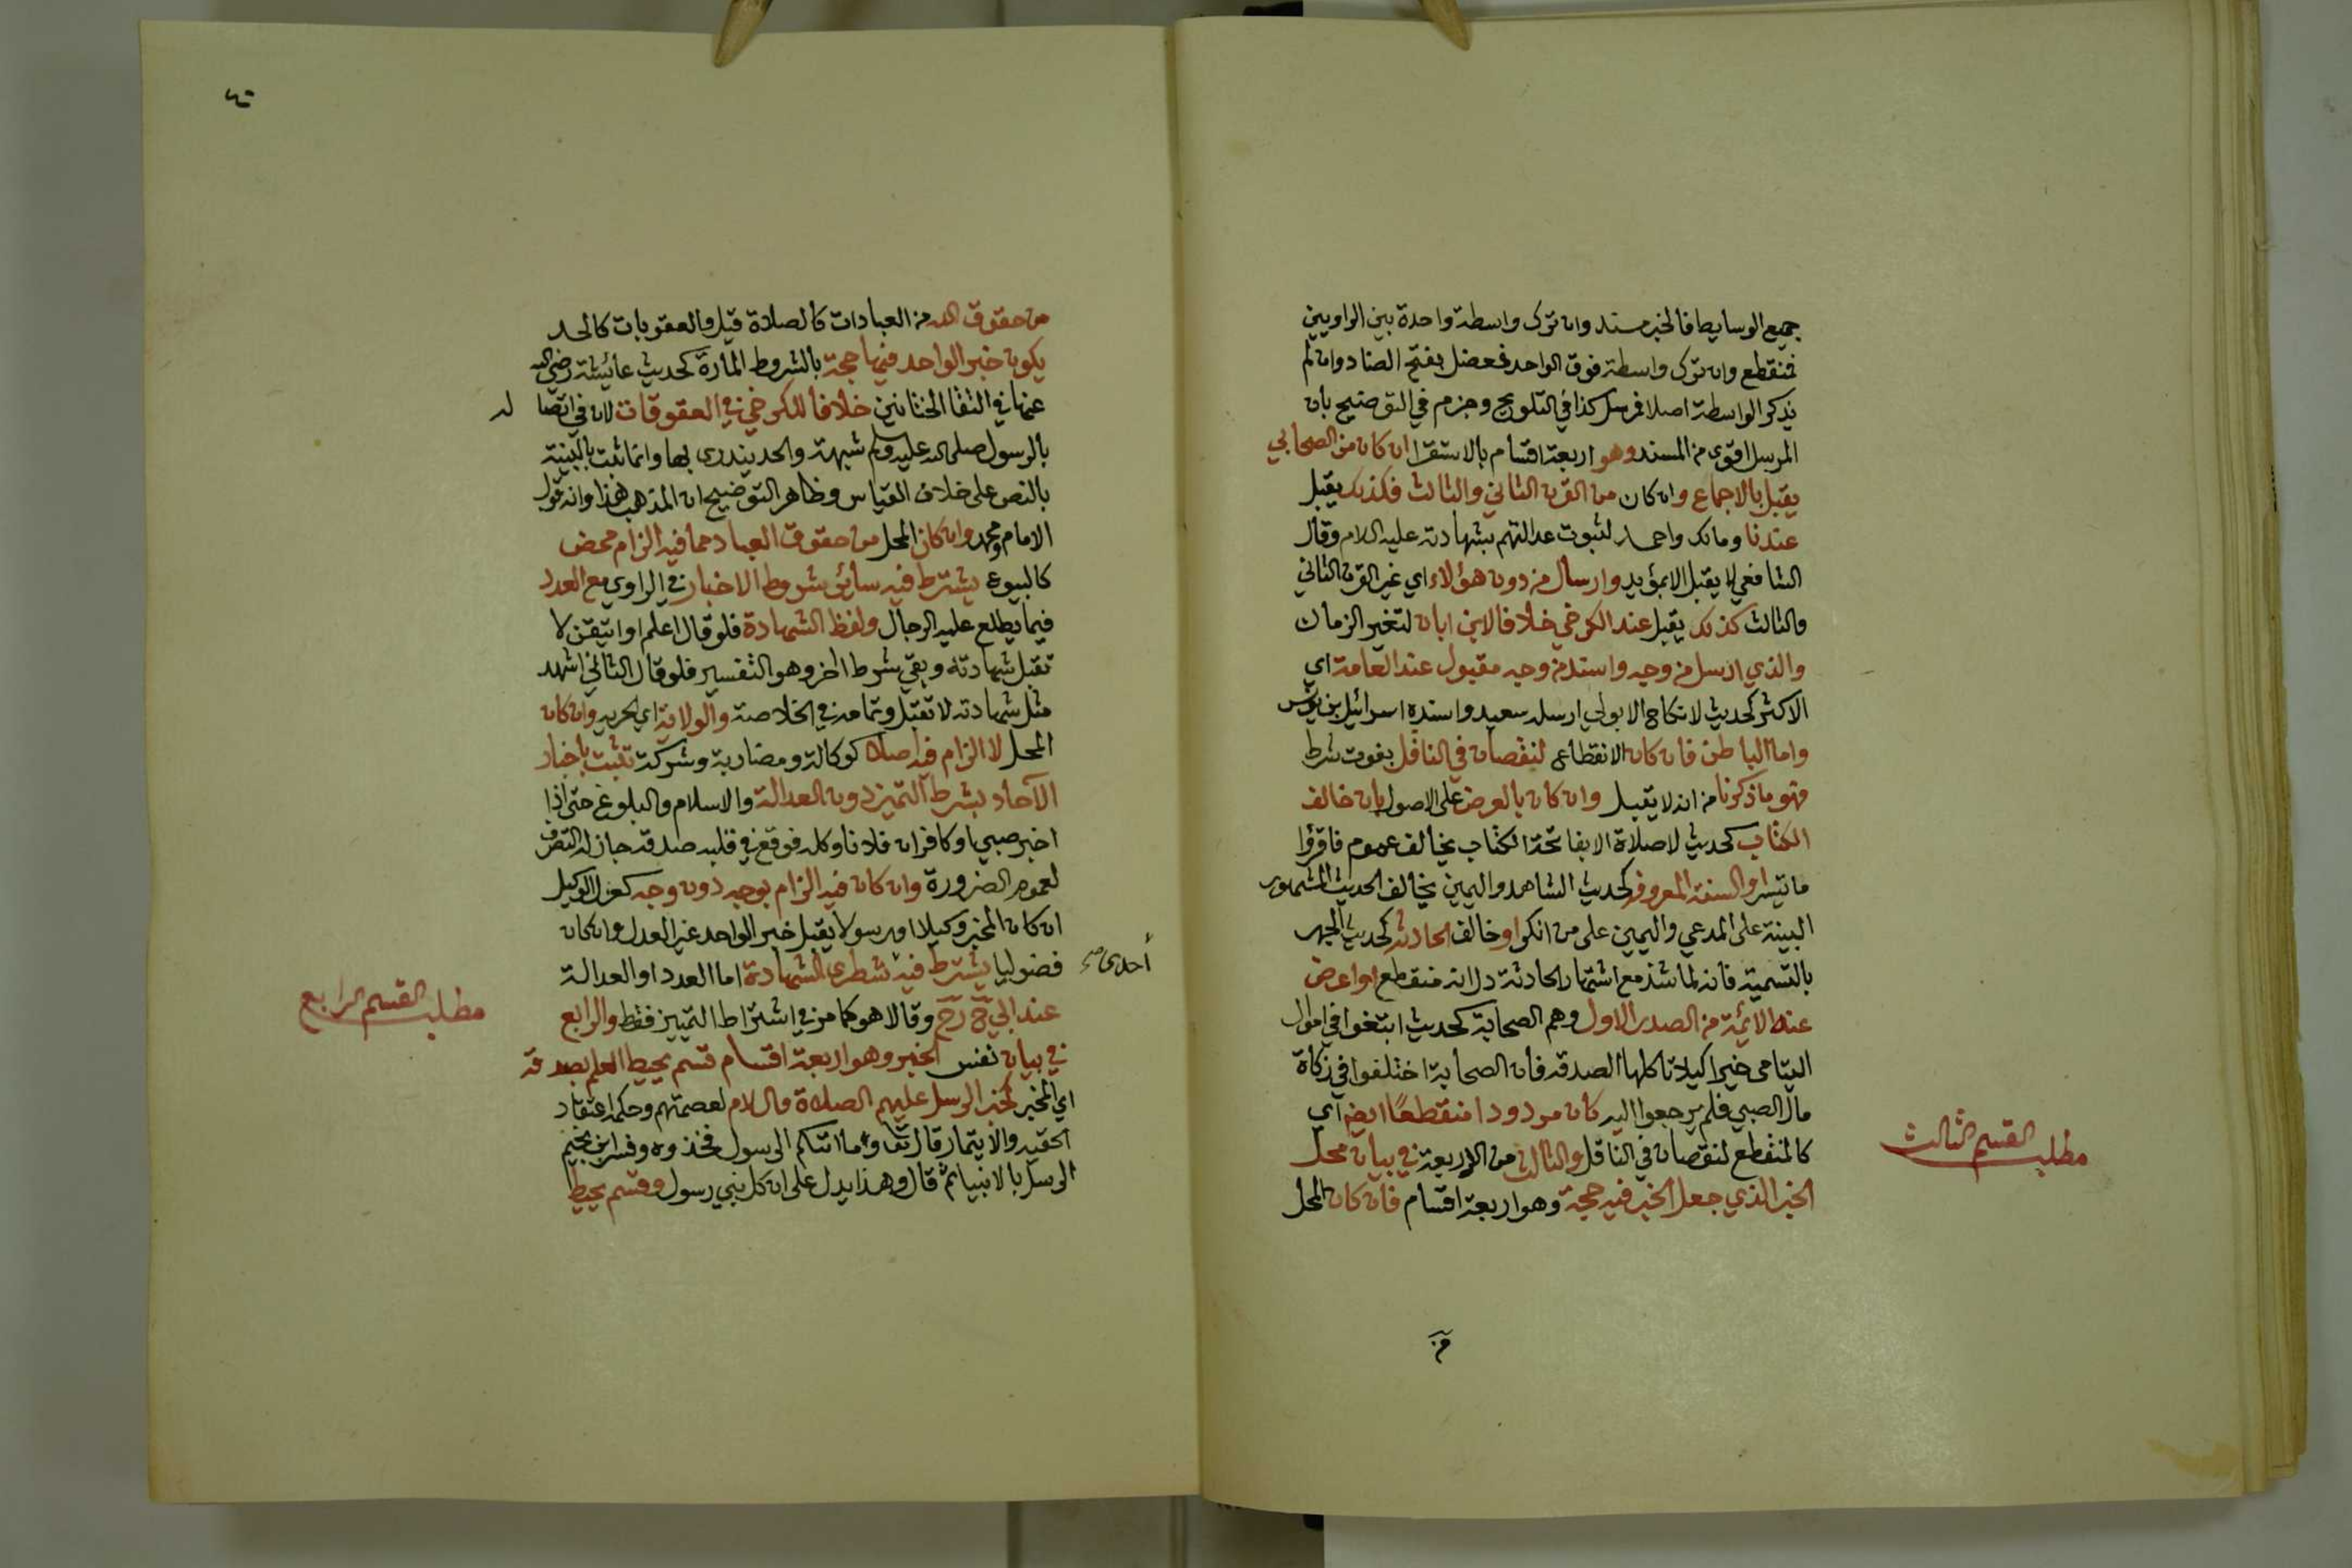 جميع الوسايط فالخبر مسند وان ترك واسطة واحدة بين الراويين
فمنقطع وان ترك واسطة فوق الواحد فمعضل بفتح الضاد وان لم
يذكر الواسطة اصلا فمرسل كذا في التلويح وجزم في التوضيح بأن
المرسل اقوى من المسند وهو اربعة اقسام بالاستقرا ان كان من الصحابي
يقبل بالاجماع وان كان من القرن الثاني والثالث فكذلك يقبل
عندنا ومالك واحمد لثبوت عدالتهم بشهادته عليه السلام وقال
الشافعي لا يقبل الا بمؤيد وارسال من دون هؤلاء اي غير القرن الثاني
والثالث كذلك يقبل عند الكرخي خلافا لابن ابان لتغير الزمان
والذي ارسل من وجه واسند من وجه مقبول عند العامة اي
الاكثر كحديث لا نكاح الا بولي ارسله سعيد واسنده اسرائيل بن يونس
واما الباطن فان كان الانقطاع لنقصان في الناقل بفوت شرط
فهو ما ذكرنا من انه لا يقبل وان كان بالعرض على الاصول بان خالف
الكتاب كحديث لاصلاة الا بفاتحة الكتاب يخالف عموم فاقرؤا
ما تيسر او السنة المعروفة كحديث الشاهد واليمين يخالف الحديث المشهور
البينة على المدعي واليمين على من انكر او خالف الحادثة كحديث الجهر
بالتسمية فانه لما شذ مع اشتهار الحادثة دل انه منقطع او اعرض
عنه الائمة من الصدر الاول وهم الصحابة كحديث ابتغوا في اموال
اليتامى خيرا كيلا تاكلها الصدقة فان الصحابة اختلفوا في زكاة
مال الصبي فلم يرجعوا اليه كان مردودا منقطعًا ايضا اي
كالمنقطع لنقصان في الناقل والثالث من الاربعة في بيان محل
الخبر الذي جعل الخبر فيه حجة وهو اربعة اقسام فان كان المحل
مطلب القسم الثالث
من
من حقوق الله من العبادات كالصلاة قيل والعقوبات كالحد
يكون خبر الواحد فيها حجة بالشروط المارة كحديث عائشة رضي الله
عنها في التقا الختانين خلافا للكرخي في العقوبات لان في اتصا له
بالرسول صلى الله عليه وسلم شبهة والحد يندرى بها وانما ثبت بالبينة
بالنص على خلاف القياس وظاهر التوضيح ان المذهب هذا وانه قول
الامام ومحمد وان كان المحل من حقوق العباد مما فيه الزام محض
كالبيوع يشترط فيه سائر شروط الاخبار في الراوي مع العدد
فيما يطلع عليه الرجال ولفظ الشهادة فلو قال اعلم او اتيقن لا
تقبل شهادته وبقي شرط اخر وهو التفسير فلو قال الثاني اشهد
مثل شهادته لا تقبل وتمامه في الخلاصة والولاية اي الحرية وان كان
المحل لا الزام فيه اصلا كوكالة ومضاربة وشركة تثبت باخبار
الآحاد بشرط التمييز دون العدالة والاسلام والبلوغ حتى اذا
اخبر صبي او كافر ان فلانا وكله فوقع في قلبه صدقه جاز له التصرف
لعموم الضرورة وان كان فيه الزام بوجه دون وجه كعزل الوكيل
ان كان المخبر وكيلا او رسولا يقبل خبر الواحد غير العدل وان كان
فضوليا يشترط فيه شطري الشهادة اما العدد او العدالة
أحدى صح
عند ابي ح رح وقالا هو كما مر في اشتراط التمييز فقط والرابع
مطلب القسم الرابع
في بيان نفس الخبر وهو اربعة اقسام قسم يحيط العلم بصدقه
اي المخبر كخبر الرسل عليهم الصلاة والسلام لعصمتهم وحكمه اعتقاد
الحقية والايتمار قال تعا وما اتتكم الرسول فخذوه وفسر ابن نجيم
الرسل بالانبيا ثم قال وهذا يدل على ان كل نبي رسول وقسم يحيط